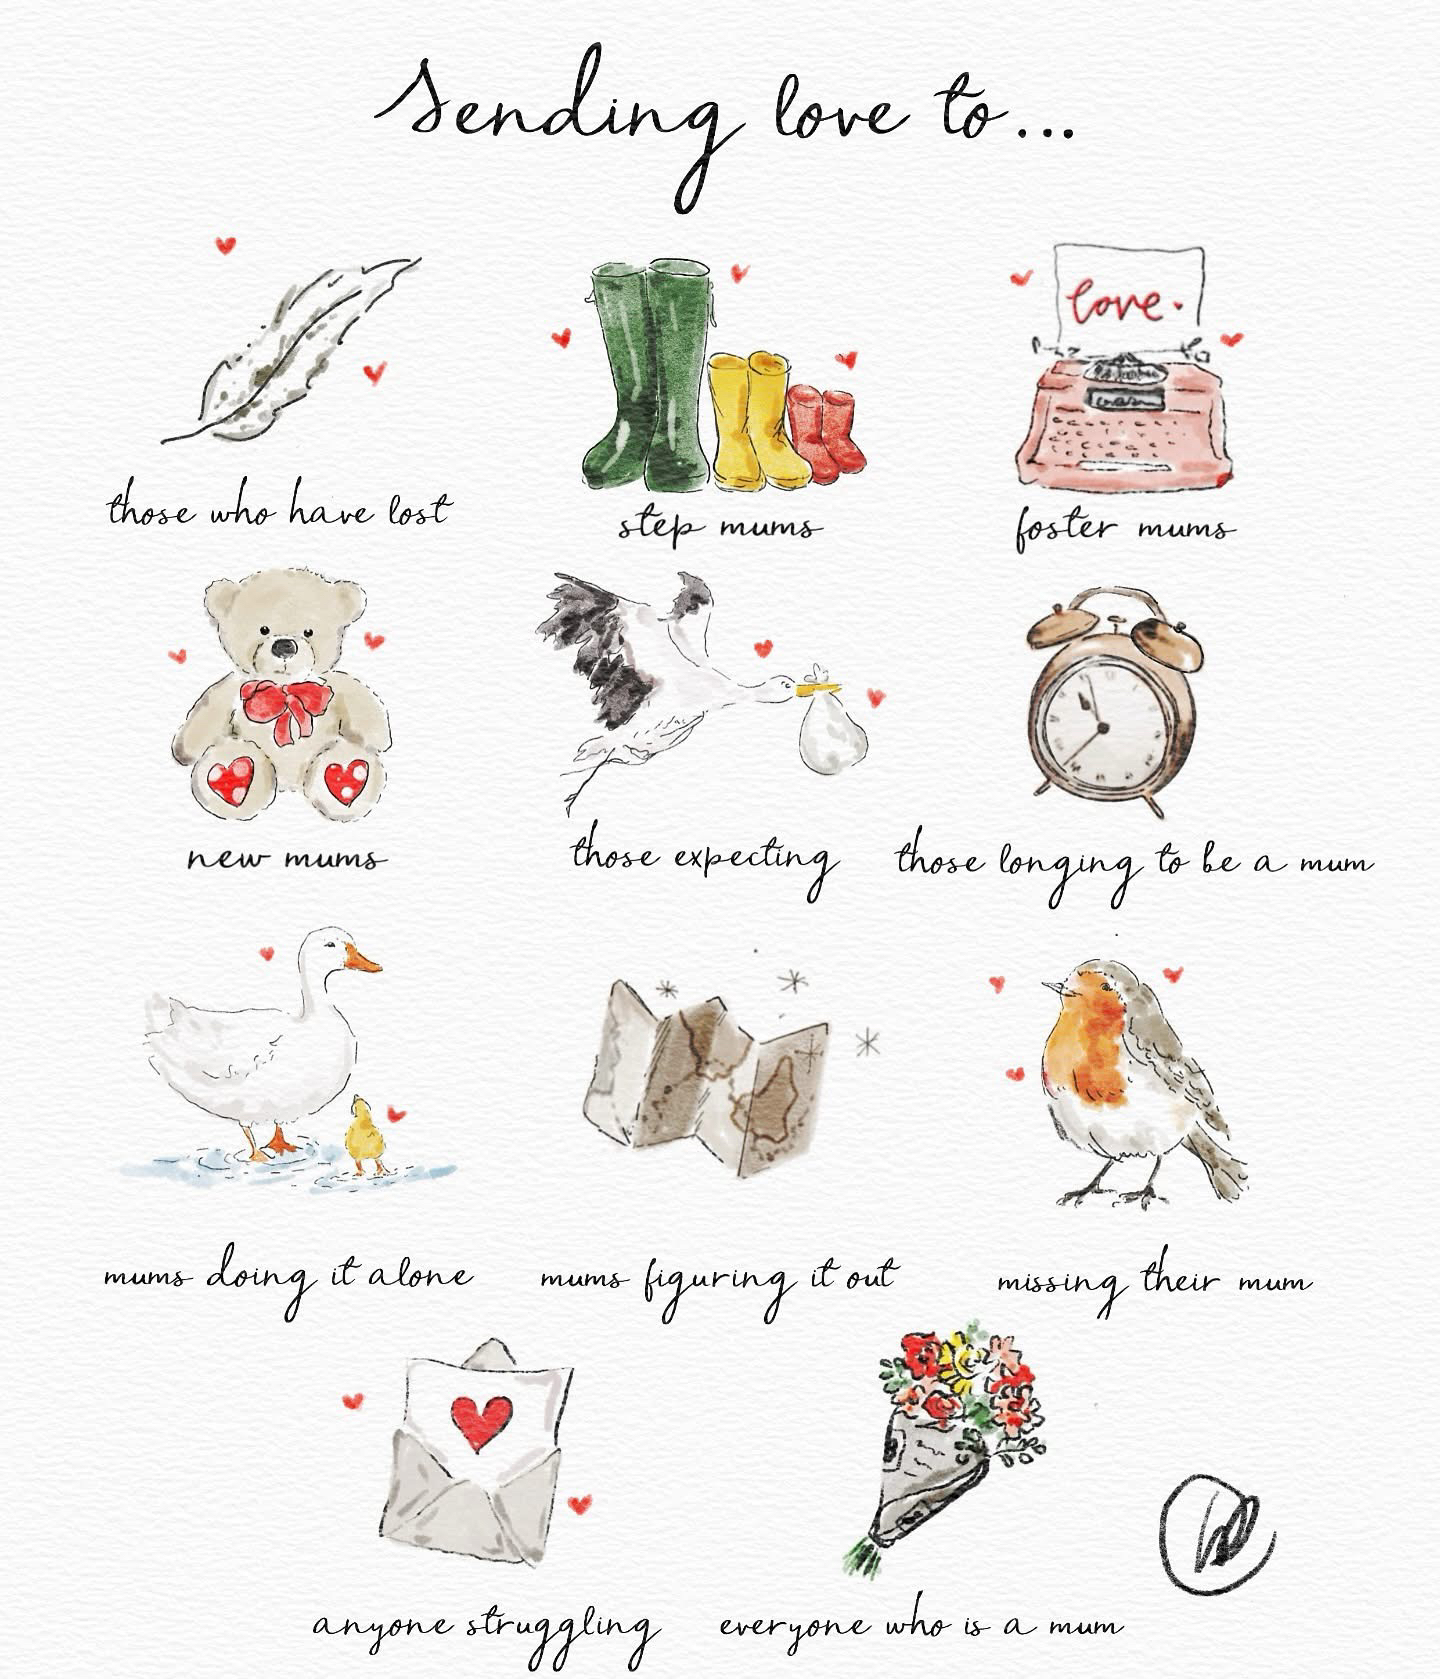 Sending love to...
love.
those who have lost
step mums
foster mums
new mums
those expecting
those longing to be a mum
mums doing it alone
mums figuring it out
missing their mum
anyone struggling
everyone who is a mum